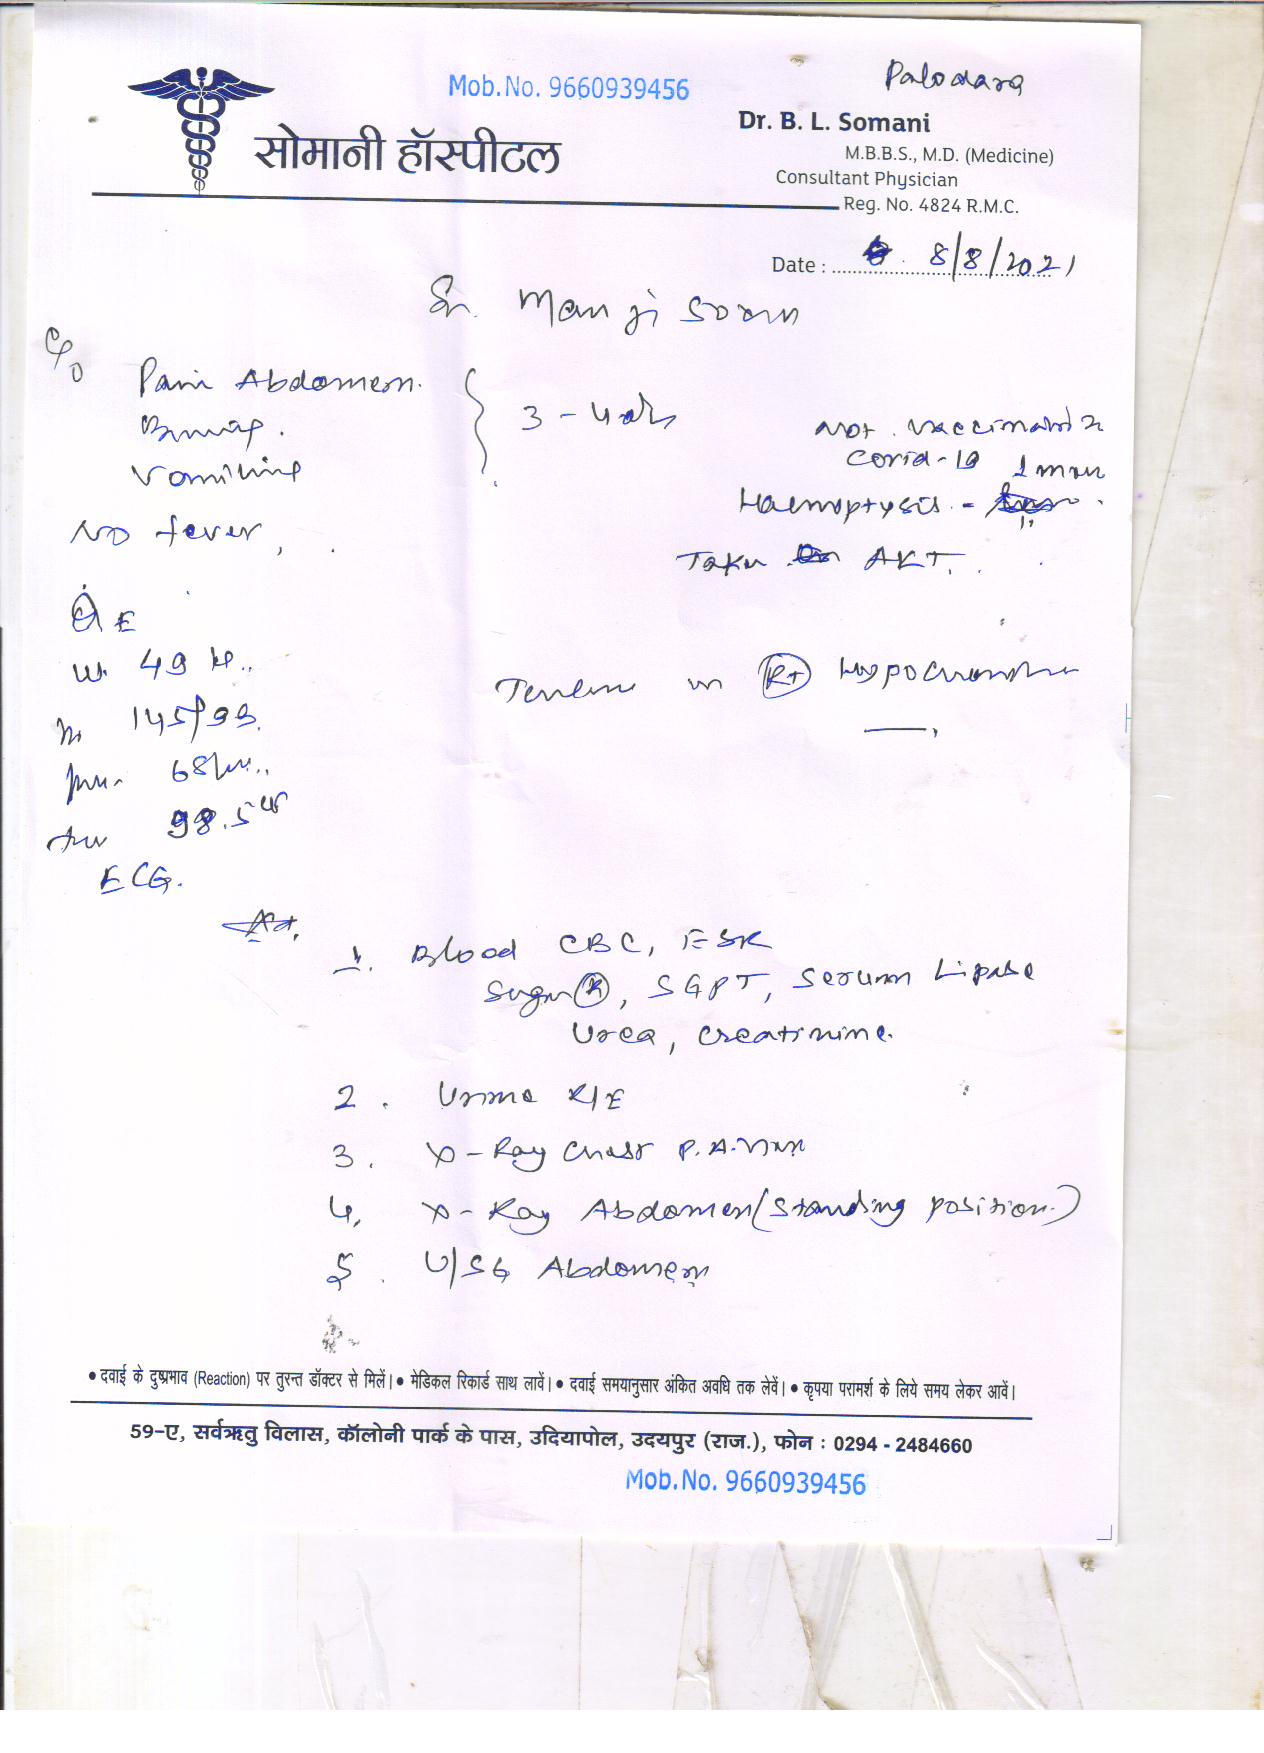 Palodara
Mob.No. 9660939456
सोमानी हॉस्पीटल
Dr. B. L. Somani
M.B.B.S., M.D. (Medicine)
Consultant Physician
Reg. No. 4824 R.M.C.
Date : 8/8/2021
Manji
C/o
Pain Abdomen.
Vomiting
3 - 4
Not Vaccinated
Covid-19
Haemoptysis -
Taken AKT.
No fever,
O/E
Wt. 49
145/99
68/
98.5
ECG.
Tender in Rt Hypochondrium
1. Blood CBC, ESR
Sugar R, SGPT, Serum Lipase
Urea, Creatinine.
2. Urine R/E
3. X-Ray Chest P.A. View
4. X-Ray Abdomen (Standing position)
5. U/SG Abdomen
• दवाई के दुष्प्रभाव (Reaction) पर तुरन्त डॉक्टर से मिलें। • मेडिकल रिकार्ड साथ लावें। • दवाई समयानुसार अंकित अवधि तक लेवें। • कृपया परांमर्श के लिये समय लेकर आवें।
59-ए, सर्वऋतु विलास, कॉलोनी पार्क के पास, उदियापोल, उदयपुर (राज.), फोन : 0294 - 2484660
Mob.No. 9660939456